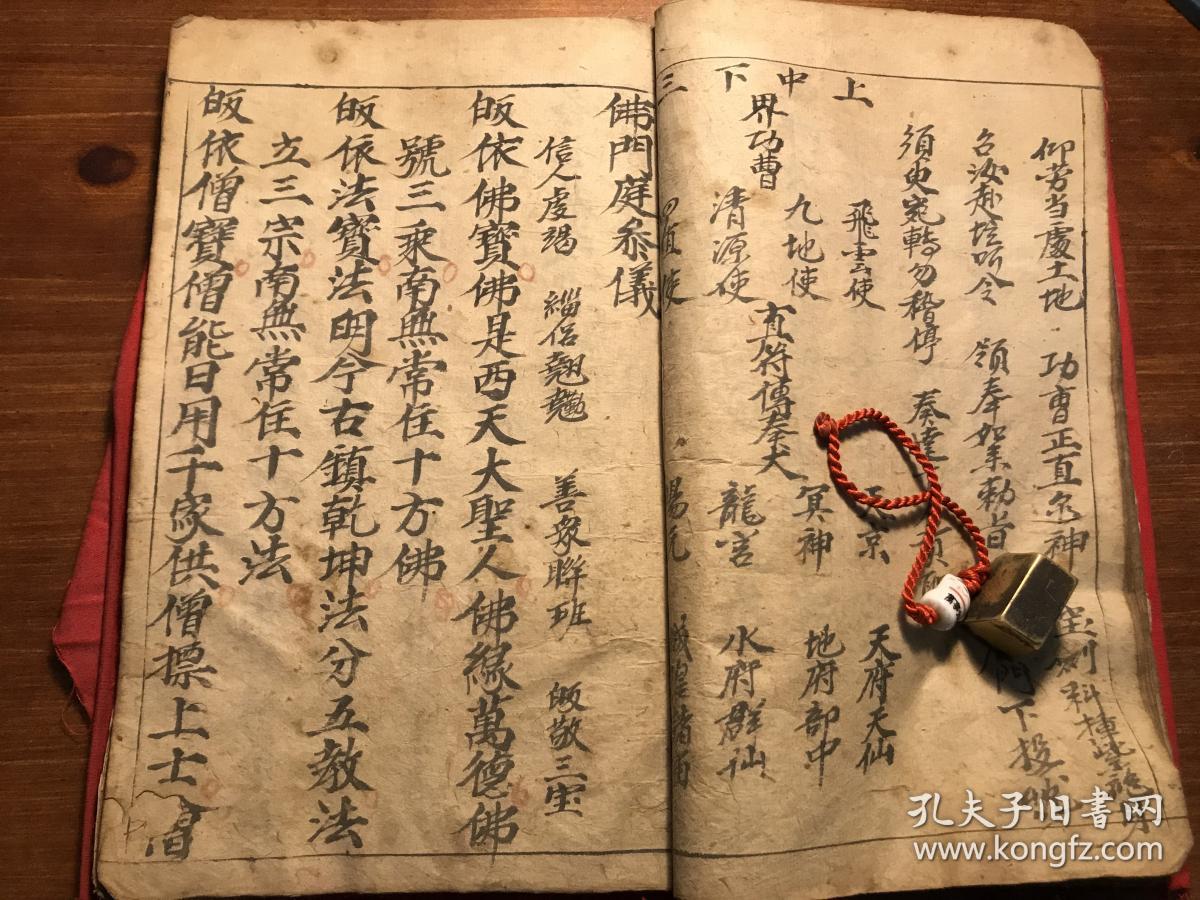 仰劳当處土地 功曹正直㒷神
召汝赴坛听令 領奉如来勅旨
須臾宛轉勿稽停 奏達 門下
上 飛雲使 天京 天府天仙
中 九地使 冥神 地府部中
界功曹 直符傳奉犬
下 清源使 龍宫 水府群仙
三 四直使 陽元 城隍諸司
佛門庭叅儀
信人虔竭 緇侣翹勤 善衆聯班 皈敬三宝
皈依佛寶佛是西天大聖人佛緣萬德佛
號三乘南無常住十方佛
皈依法寶法明今古鎮乾坤法分五教法
立三宗南無常住十方法
皈依僧寶僧能日用千家供僧標上士
孔夫子旧书网
www.kongfz.com